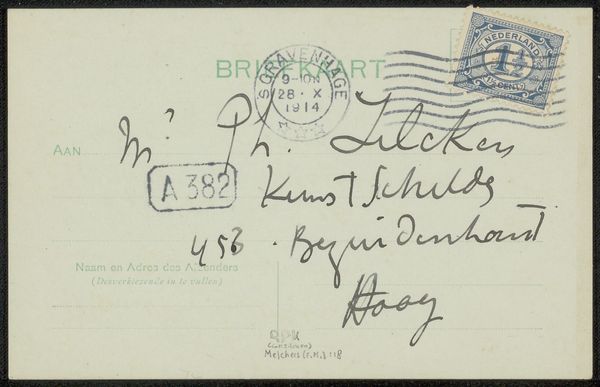 BRIEFKAART
'S GRAVENHAGE
9-10N
28·X
1914
NEDERLAND
1½
1½ CENT
AAN
Mr Ph. Zilcken
A 382
Kunst Schilder
453 · Bezuidenhout
Haag
Naam en Adres des Afzenders
(Desverkiezende in te vullen)
RPK
Melchers (F.M.): 18